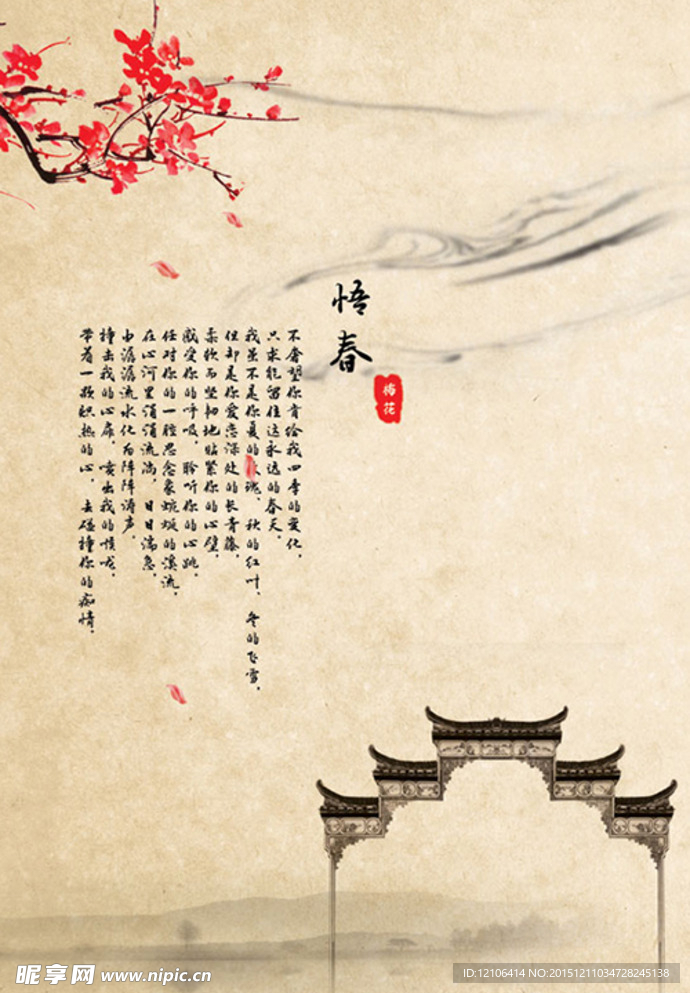 悟春
梅花
不奢望你肯给我四季的变化,
只求能留住这永远的春天,
我虽不是你夏的玫瑰,秋的红叶,冬的飞雪,
但却是你爱恋深处的长青藤,
柔软而坚韧地贴紧你的心壁,
感爱你的呼吸,聆听你的心跳,
任对你的一腔思念象蜿蜒的溪流,
在心河里涓涓流淌,日日湍急,
由潺潺流水化为阵阵涛声,
撞击我的心扉,喷出我的情感,
带着一颗炽热的心,去碰撞你的痴情,
昵享网 www.nipic.cn
ID:12106414 NO:20151211034728245138